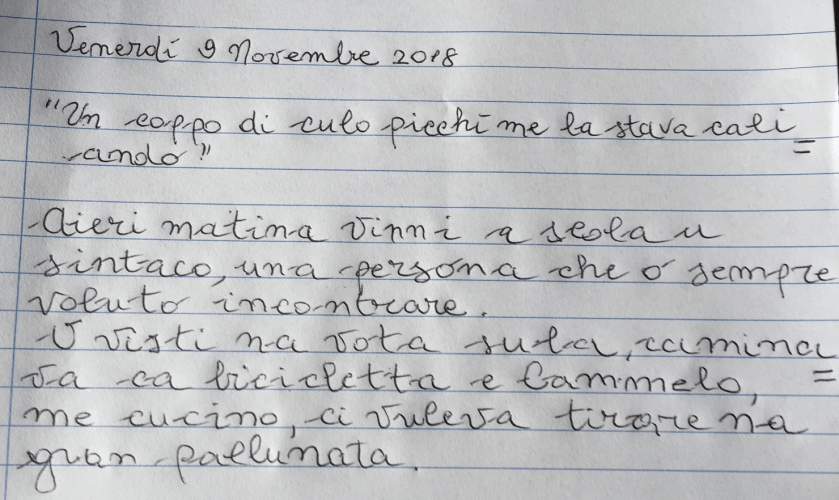 Venerdì 9 Novembre 2018
"Un coppo di culo picchì me la stava cali
ando"
Aieri matina vinni a scola u
sintaco, una persona che o sempre
voluto incontrare.
U visti na vota sula, camina
va ca bicicletta e Cammelo,
me cucino, ci vuleva tirare na
gran pallunata.